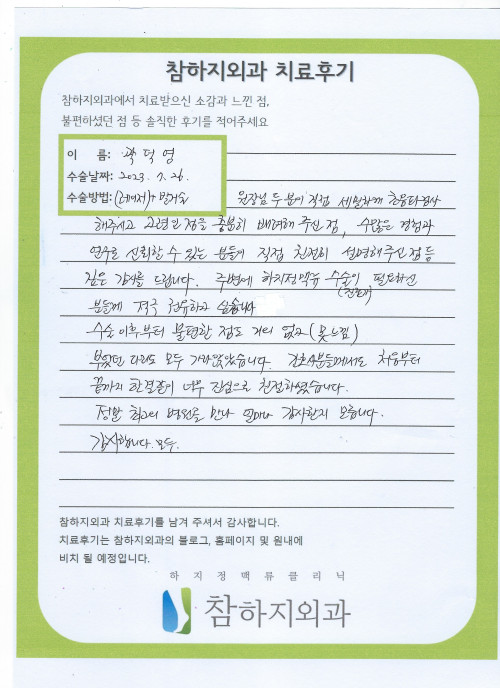 참하지외과 치료후기
참하지외과에서 치료받으신 소감과 느낀 점,
불편하셨던 점 등 솔직한 후기를 적어주세요
이 름: 곽덕영
수술날짜: 2023. 7. 26.
수술방법: (레이저)+발거술
원장님 두 분이 직접 세밀하게 초음파검사
해주시고 고령인 점을 충분히 배려해 주신 점, 수많은 경험과
연구로 신뢰할 수 있는 분들이 직접 친절히 설명해주신 점 등
깊은 감사를 드립니다. 주변에 하지정맥류 수술이 필요하신
분들께 적극 권유하고 싶습니다
수술 이후부터 불편한 점도 거의 없고 (못느낌)
부었던 다리도 모두 가라앉았습니다. 간호사분들께서도 처음부터
끝까지 한결같이 너무 진심으로 친절하셨습니다.
정말 최고의 병원을 만나 얼마나 감사한지 모릅니다.
감사합니다. 모두.
참하지외과 치료후기를 남겨 주셔서 감사합니다.
치료후기는 참하지외과의 블로그, 홈페이지 및 원내에
비치 될 예정입니다.
하지정맥류클리닉
참하지외과